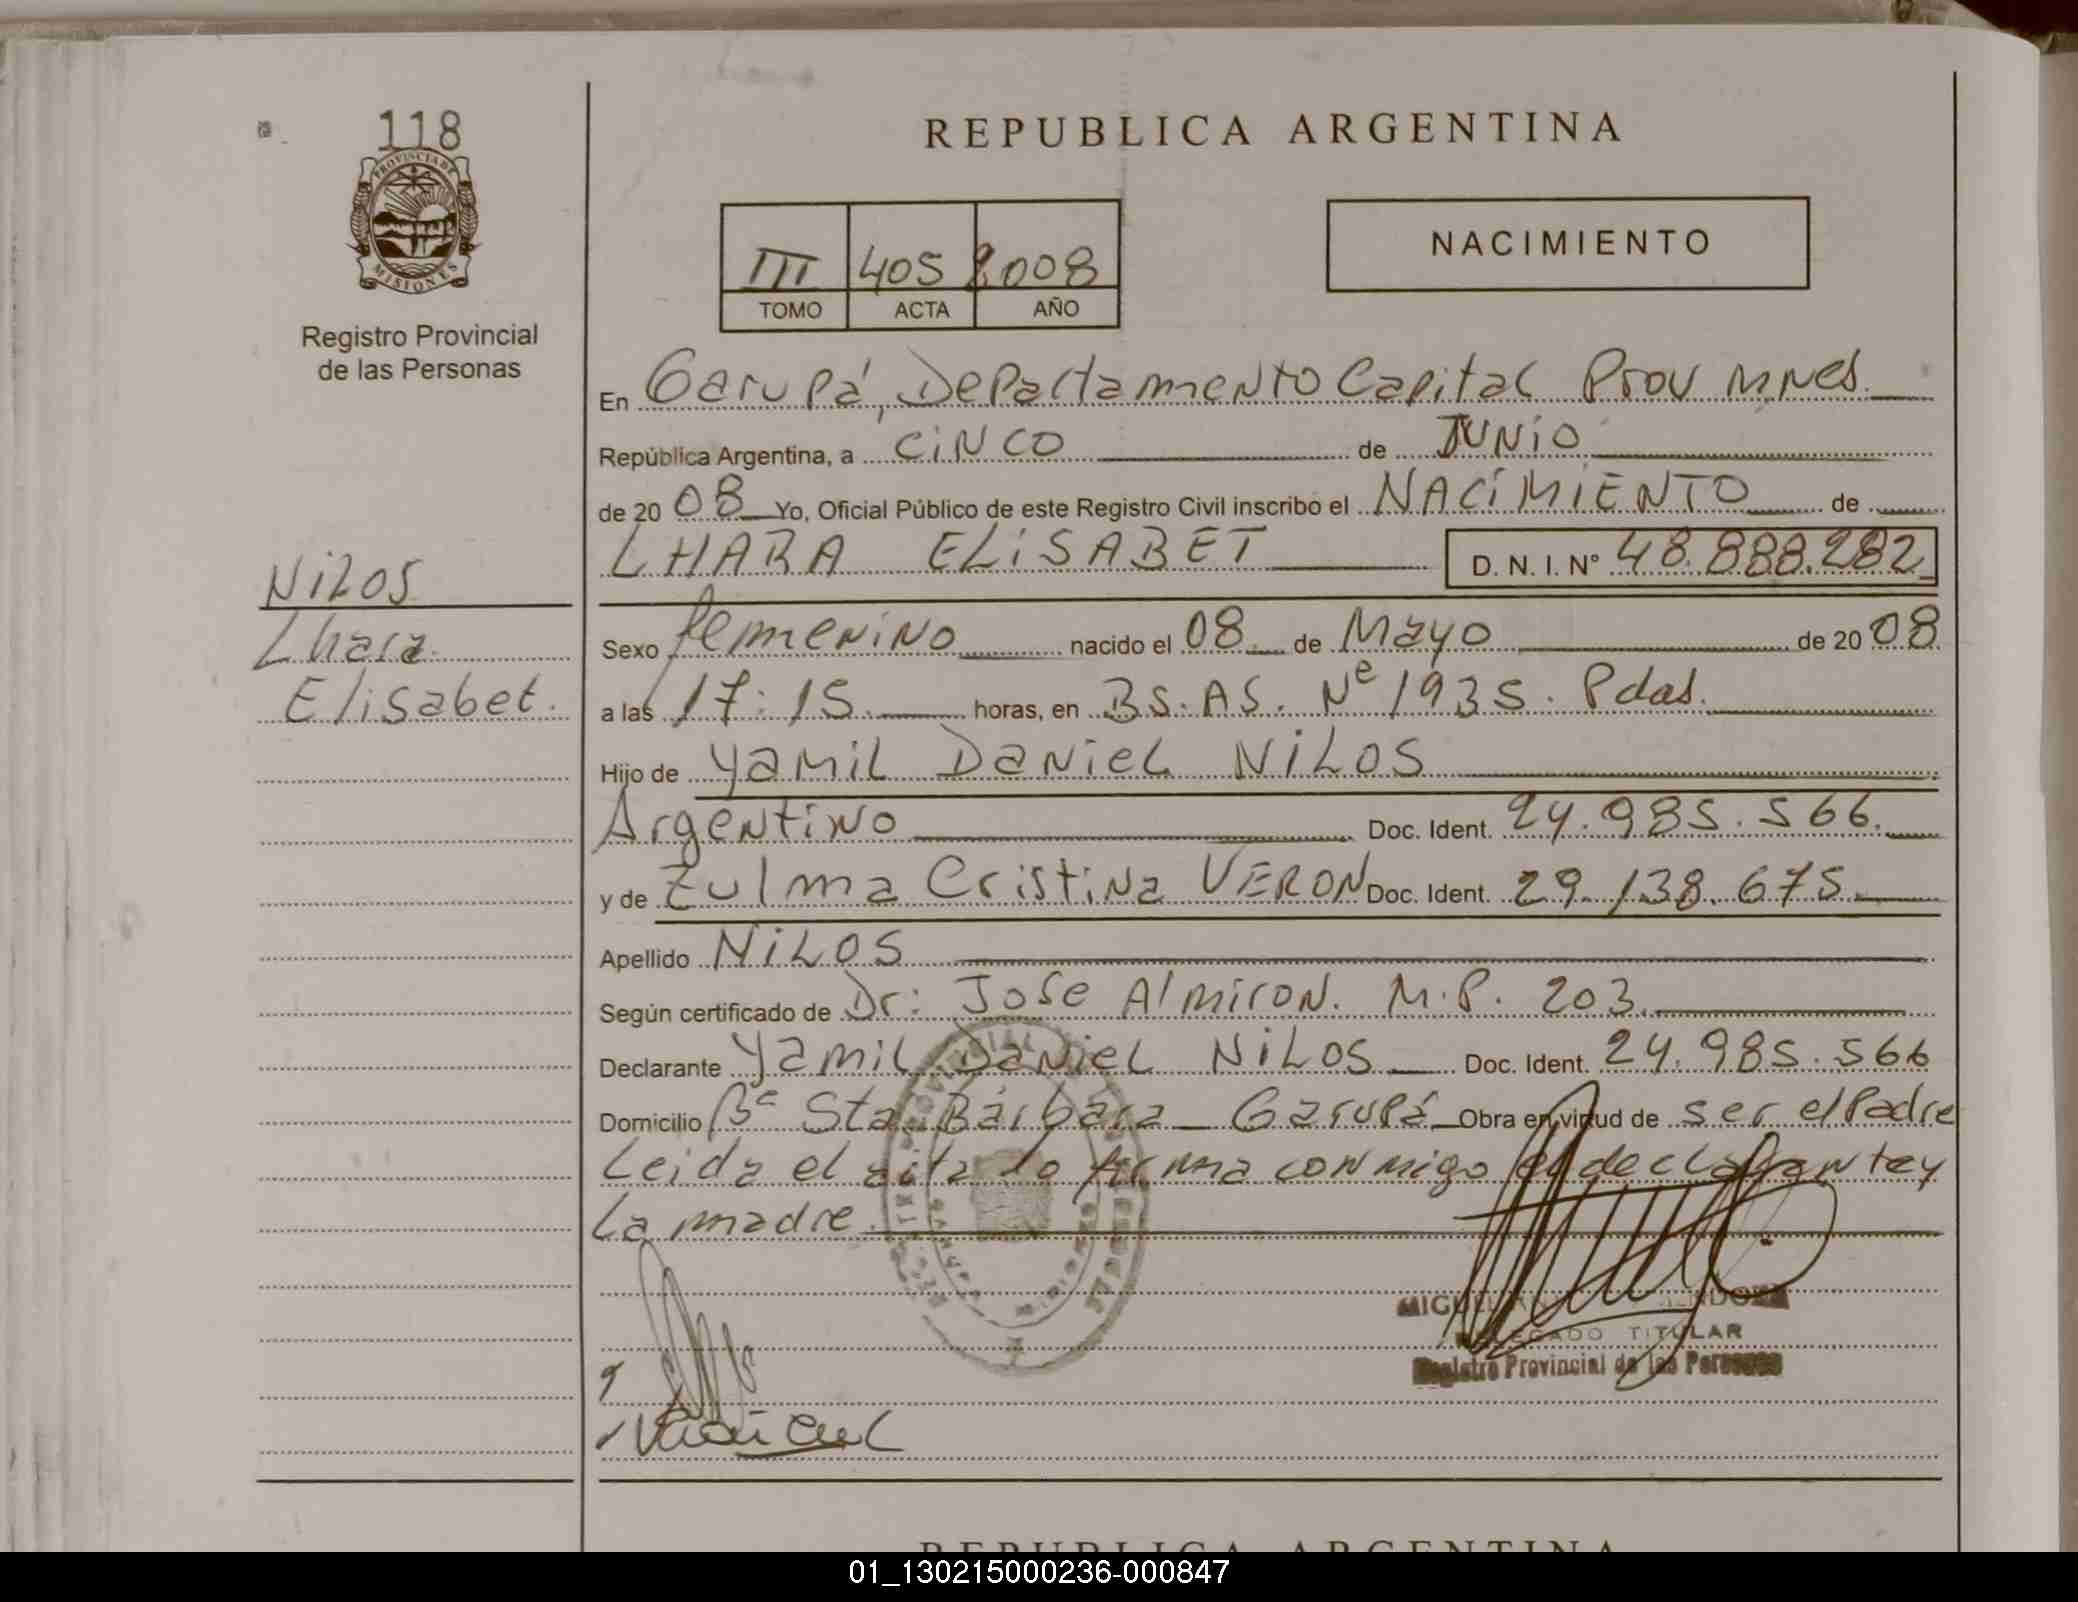 118
PROVINCIA DE
MISIONES
Registro Provincial
de las Personas
REPUBLICA ARGENTINA
III 405 2008
TOMO ACTA AÑO
NACIMIENTO
En Garupá, Departamento Capital Prov Mnes.
República Argentina, a CINCO de JUNIO
de 20 08 Yo, Oficial Público de este Registro Civil inscribo el NACIMIENTO de
LHARA ELISABET D. N. I. N° 48.888.282
NILOS
Lhara
Elisabet.
Sexo femenino nacido el 08 de Mayo de 20 08
a las 17:15 horas, en BS. AS. Nº 1935. Pdas.
Hijo de Yamil Daniel NILOS
Argentino Doc. Ident. 24.985.566.
y de Zulma Cristina VERON Doc. Ident. 29.138.675
Apellido NILOS
Según certificado de Dr: Jose Almiron. M.P. 203.
Declarante Yamil Daniel NILOS Doc. Ident. 24.985.566
Domicilio Bº Sta Bárbara - Garupá Obra en virtud de ser el Padre
Leida el acta lo firma conmigo el declarante y
la madre.
DELEGADO TITULAR
Registro Provincial de las Personas
REPUBLICA ARGENTINA
01_130215000236-000847